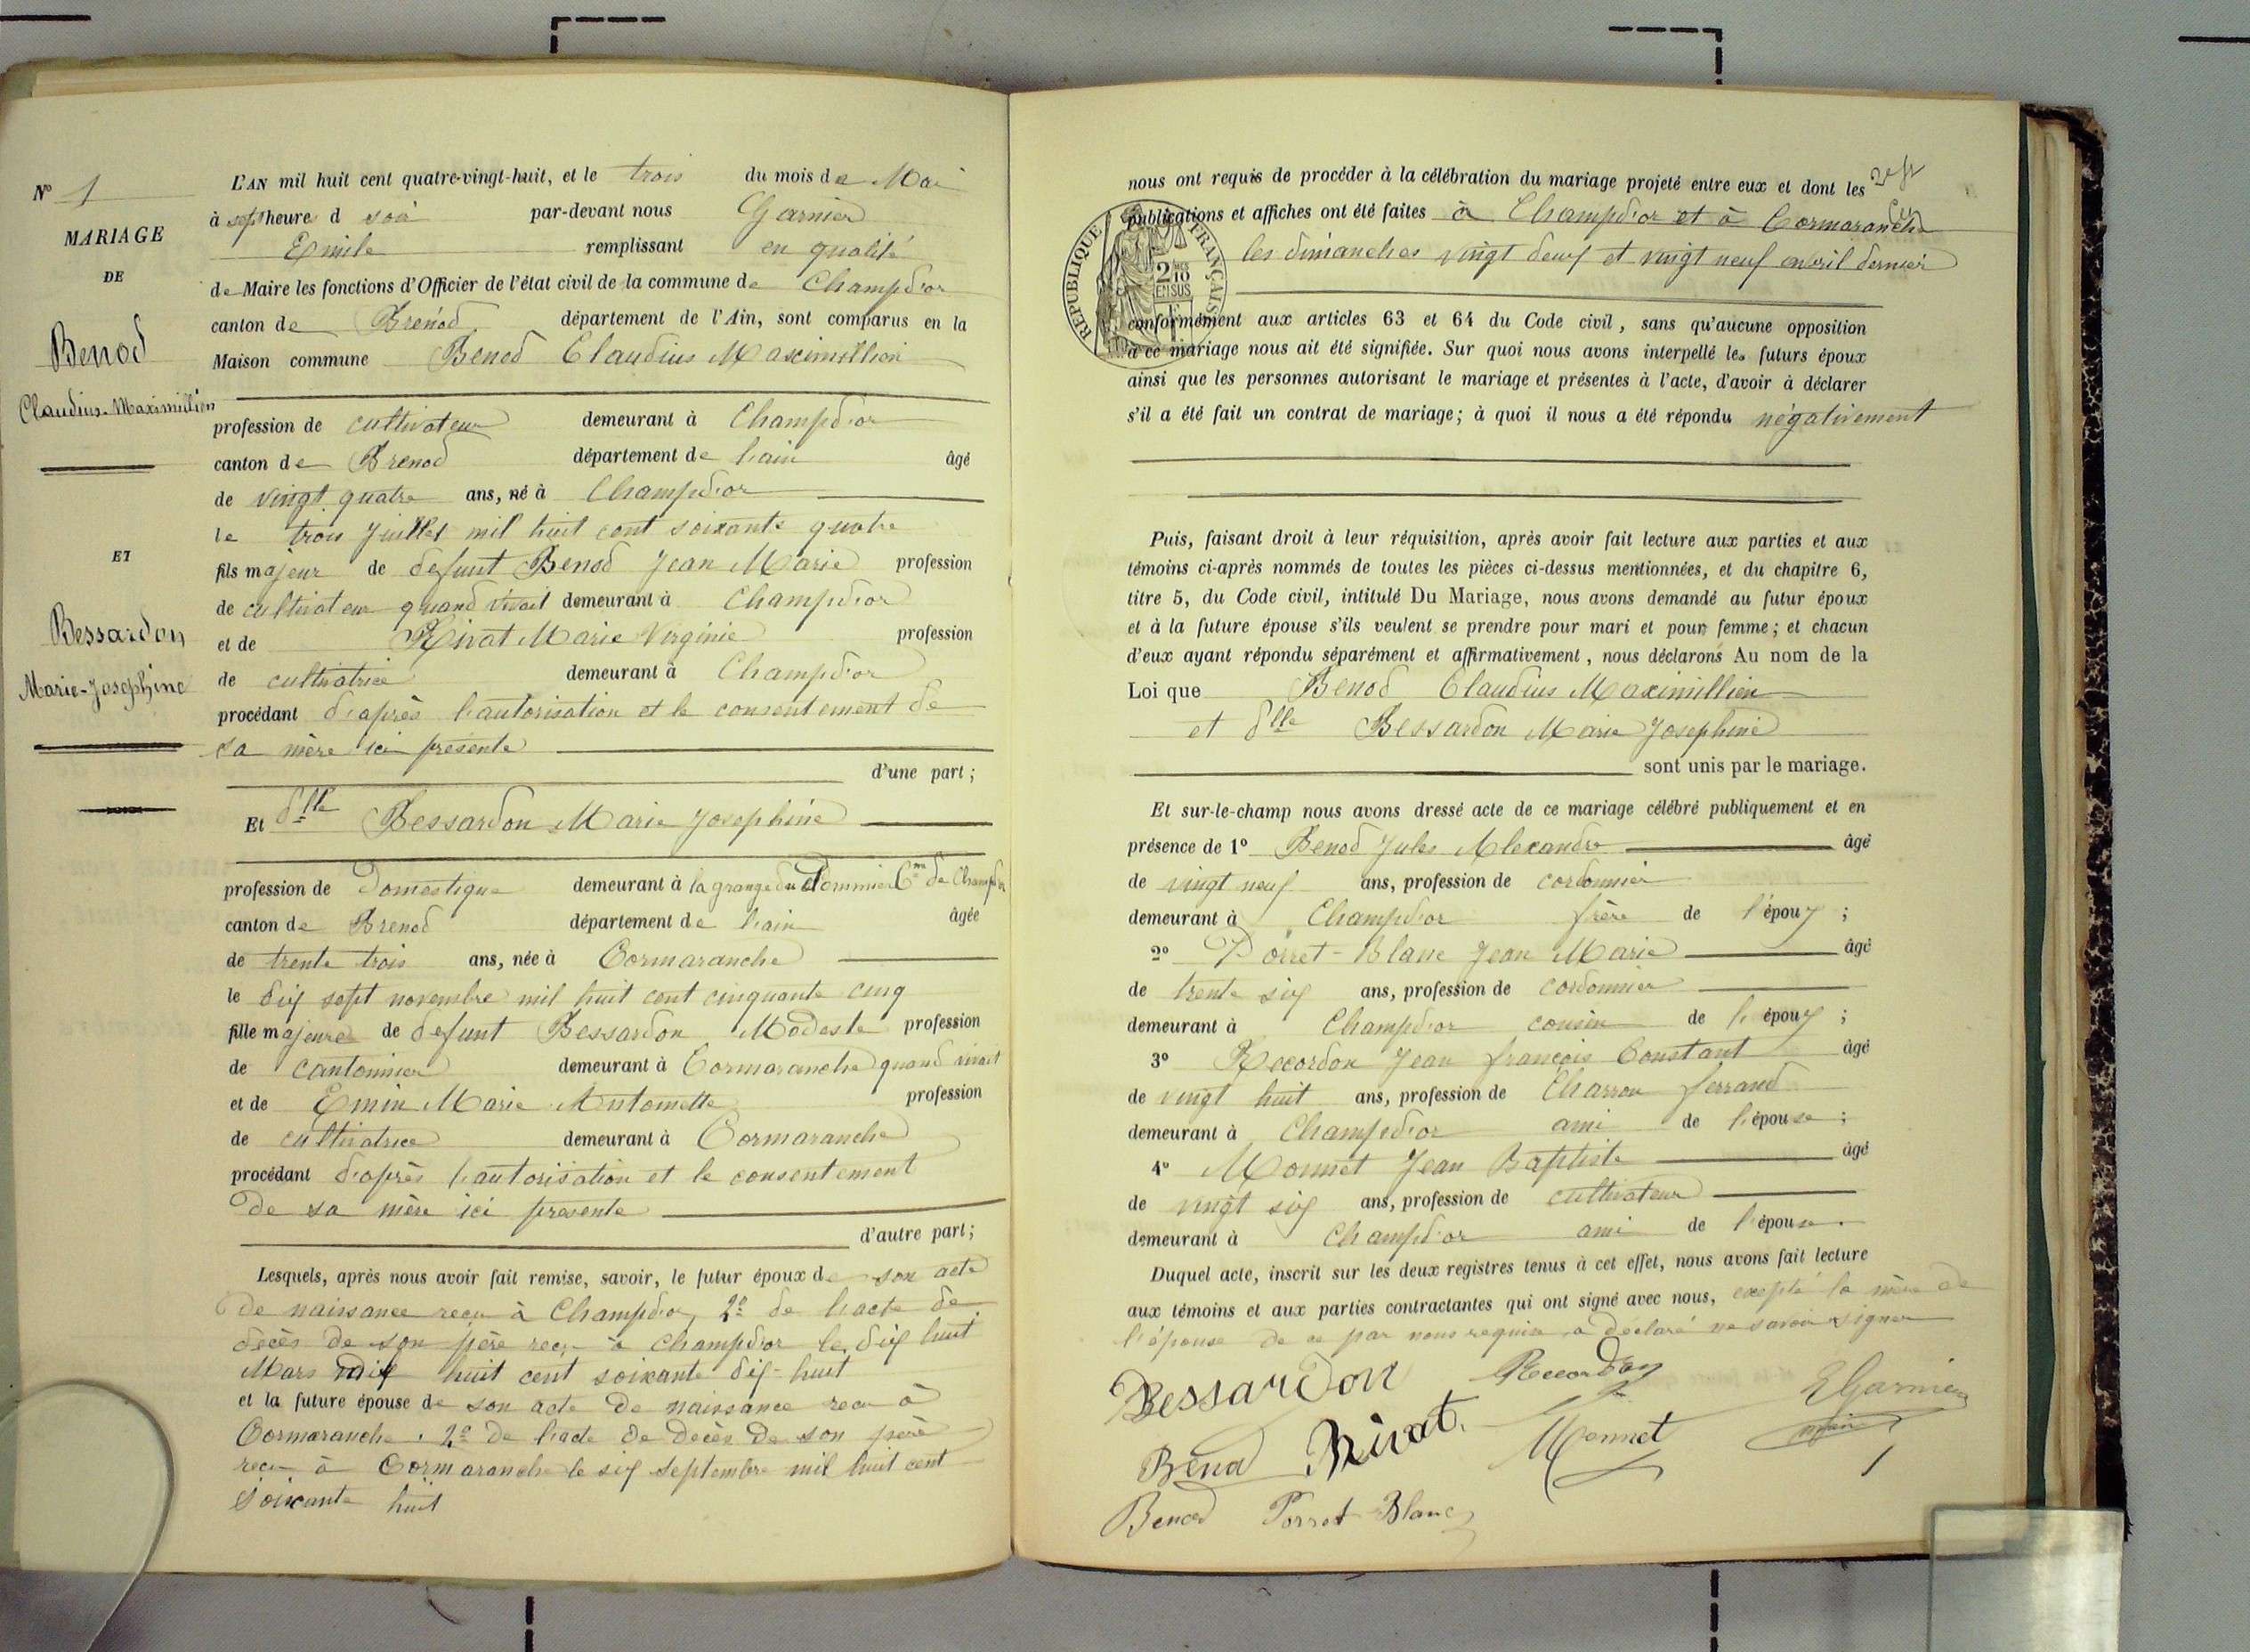 N° 1
MARIAGE
DE
Benod
Claudius-Maximillien
ET
Bessardon
Marie-Josephine
L'AN mil huit cent quatre-vingt-huit, et le trois du mois de Mai
à sept heures d soir par-devant nous Garnier
Emile remplissant en qualité
de Maire les fonctions d'Officier de l'état civil de la commune de Champdor
canton de Brénod département de l'Ain, sont comparus en la
Maison commune Benod Claudius Maximillien
profession de cultivateur demeurant à Champd'or
canton de Brenod département de l'ain âgé
de vingt quatre ans, né à Champd'or
le trois Juillet mil huit cent soixante quatre
fils majeur de defunt Benod Jean Marie profession
de cultivateur quand vivait demeurant à Champd'or
et de Rivat Marie Virginie profession
de cultivatrice demeurant à Champd'or
procédant d'après l'autorisation et le consentement de
sa mère ici présente
d'une part ;
Et dlle Bessardon Marie Josephine
profession de Domestique demeurant à la grange du Pommier Cne de Champdor
canton de Brenod département de l'ain âgée
de trente trois ans, née à Cormaranche
le dix sept novembre mil huit cent cinquante cinq
fille majeure de defunt Bessardon Modeste profession
de cantonnier demeurant à Cormaranche quand vivait
et de Emin Marie Antoinette profession
de cultivatrice demeurant à Cormaranche
procédant d'après l'autorisation et le consentement
de sa mère ici presente
d'autre part ;
Lesquels, après nous avoir fait remise, savoir, le futur époux de son acte
de naissance reçu à Champdor, 2° de l'acte de
décès de son père reçu à Champd'or le dix huit
Mars huit cent soixante dix-huit
et la future épouse de son acte de naissance recu à
Cormaranche. 2° de l'acte de decès de son père
recu à Cormaranche le six septembre mil huit cent
soixante huit
nous ont requis de procéder à la célébration du mariage projeté entre eux et dont les
publications et affiches ont été faites à Champd'or et à Cormaranche
les dimanches vingt deux et vingt neuf avril dernier
RÉPUBLIQUE FRANÇAISE
2/10 EN SUS
conformément aux articles 63 et 64 du Code civil, sans qu'aucune opposition
à ce mariage nous ait été signifiée. Sur quoi nous avons interpellé les futurs époux
ainsi que les personnes autorisant le mariage et présentes à l'acte, d'avoir à déclarer
s'il a été fait un contrat de mariage ; à quoi il nous a été répondu négativement
Puis, faisant droit à leur réquisition, après avoir fait lecture aux parties et aux
témoins ci-après nommés de toutes les pièces ci-dessus mentionnées, et du chapitre 6,
titre 5, du Code civil, intitulé Du Mariage, nous avons demandé au futur époux
et à la future épouse s'ils veulent se prendre pour mari et pour femme ; et chacun
d'eux ayant répondu séparément et affirmativement, nous déclarons Au nom de la
Loi que Benod Claudius Maximillien
et dlle Bessardon Marie Josephine
sont unis par le mariage.
Et sur-le-champ nous avons dressé acte de ce mariage célébré publiquement et en
présence de 1° Benod Jules Alexandre âgé
de vingt neuf ans, profession de cordonnier
demeurant à Champd'or frère de l'époux ;
2° Porret-Blanc Jean Marie âgé
de trente six ans, profession de cordonnier
demeurant à Champd'or cousin de l'époux ;
3° Recordon Jean françois Constant âgé
de vingt huit ans, profession de Charron ferrand
demeurant à Champd'or ami de l'épouse ;
4° Monnet Jean Baptiste âgé
de vingt six ans, profession de cultivateur
demeurant à Champd'or ami de l'épouse.
Duquel acte, inscrit sur les deux registres tenus à cet effet, nous avons fait lecture
aux témoins et aux parties contractantes qui ont signé avec nous, excepté la mère de
l'épouse de ce par nous requise a déclaré ne savoir signer
Bessardon Recordon EGarnier
Benod Rivat. Monnet maire
Benod Porret-Blanc